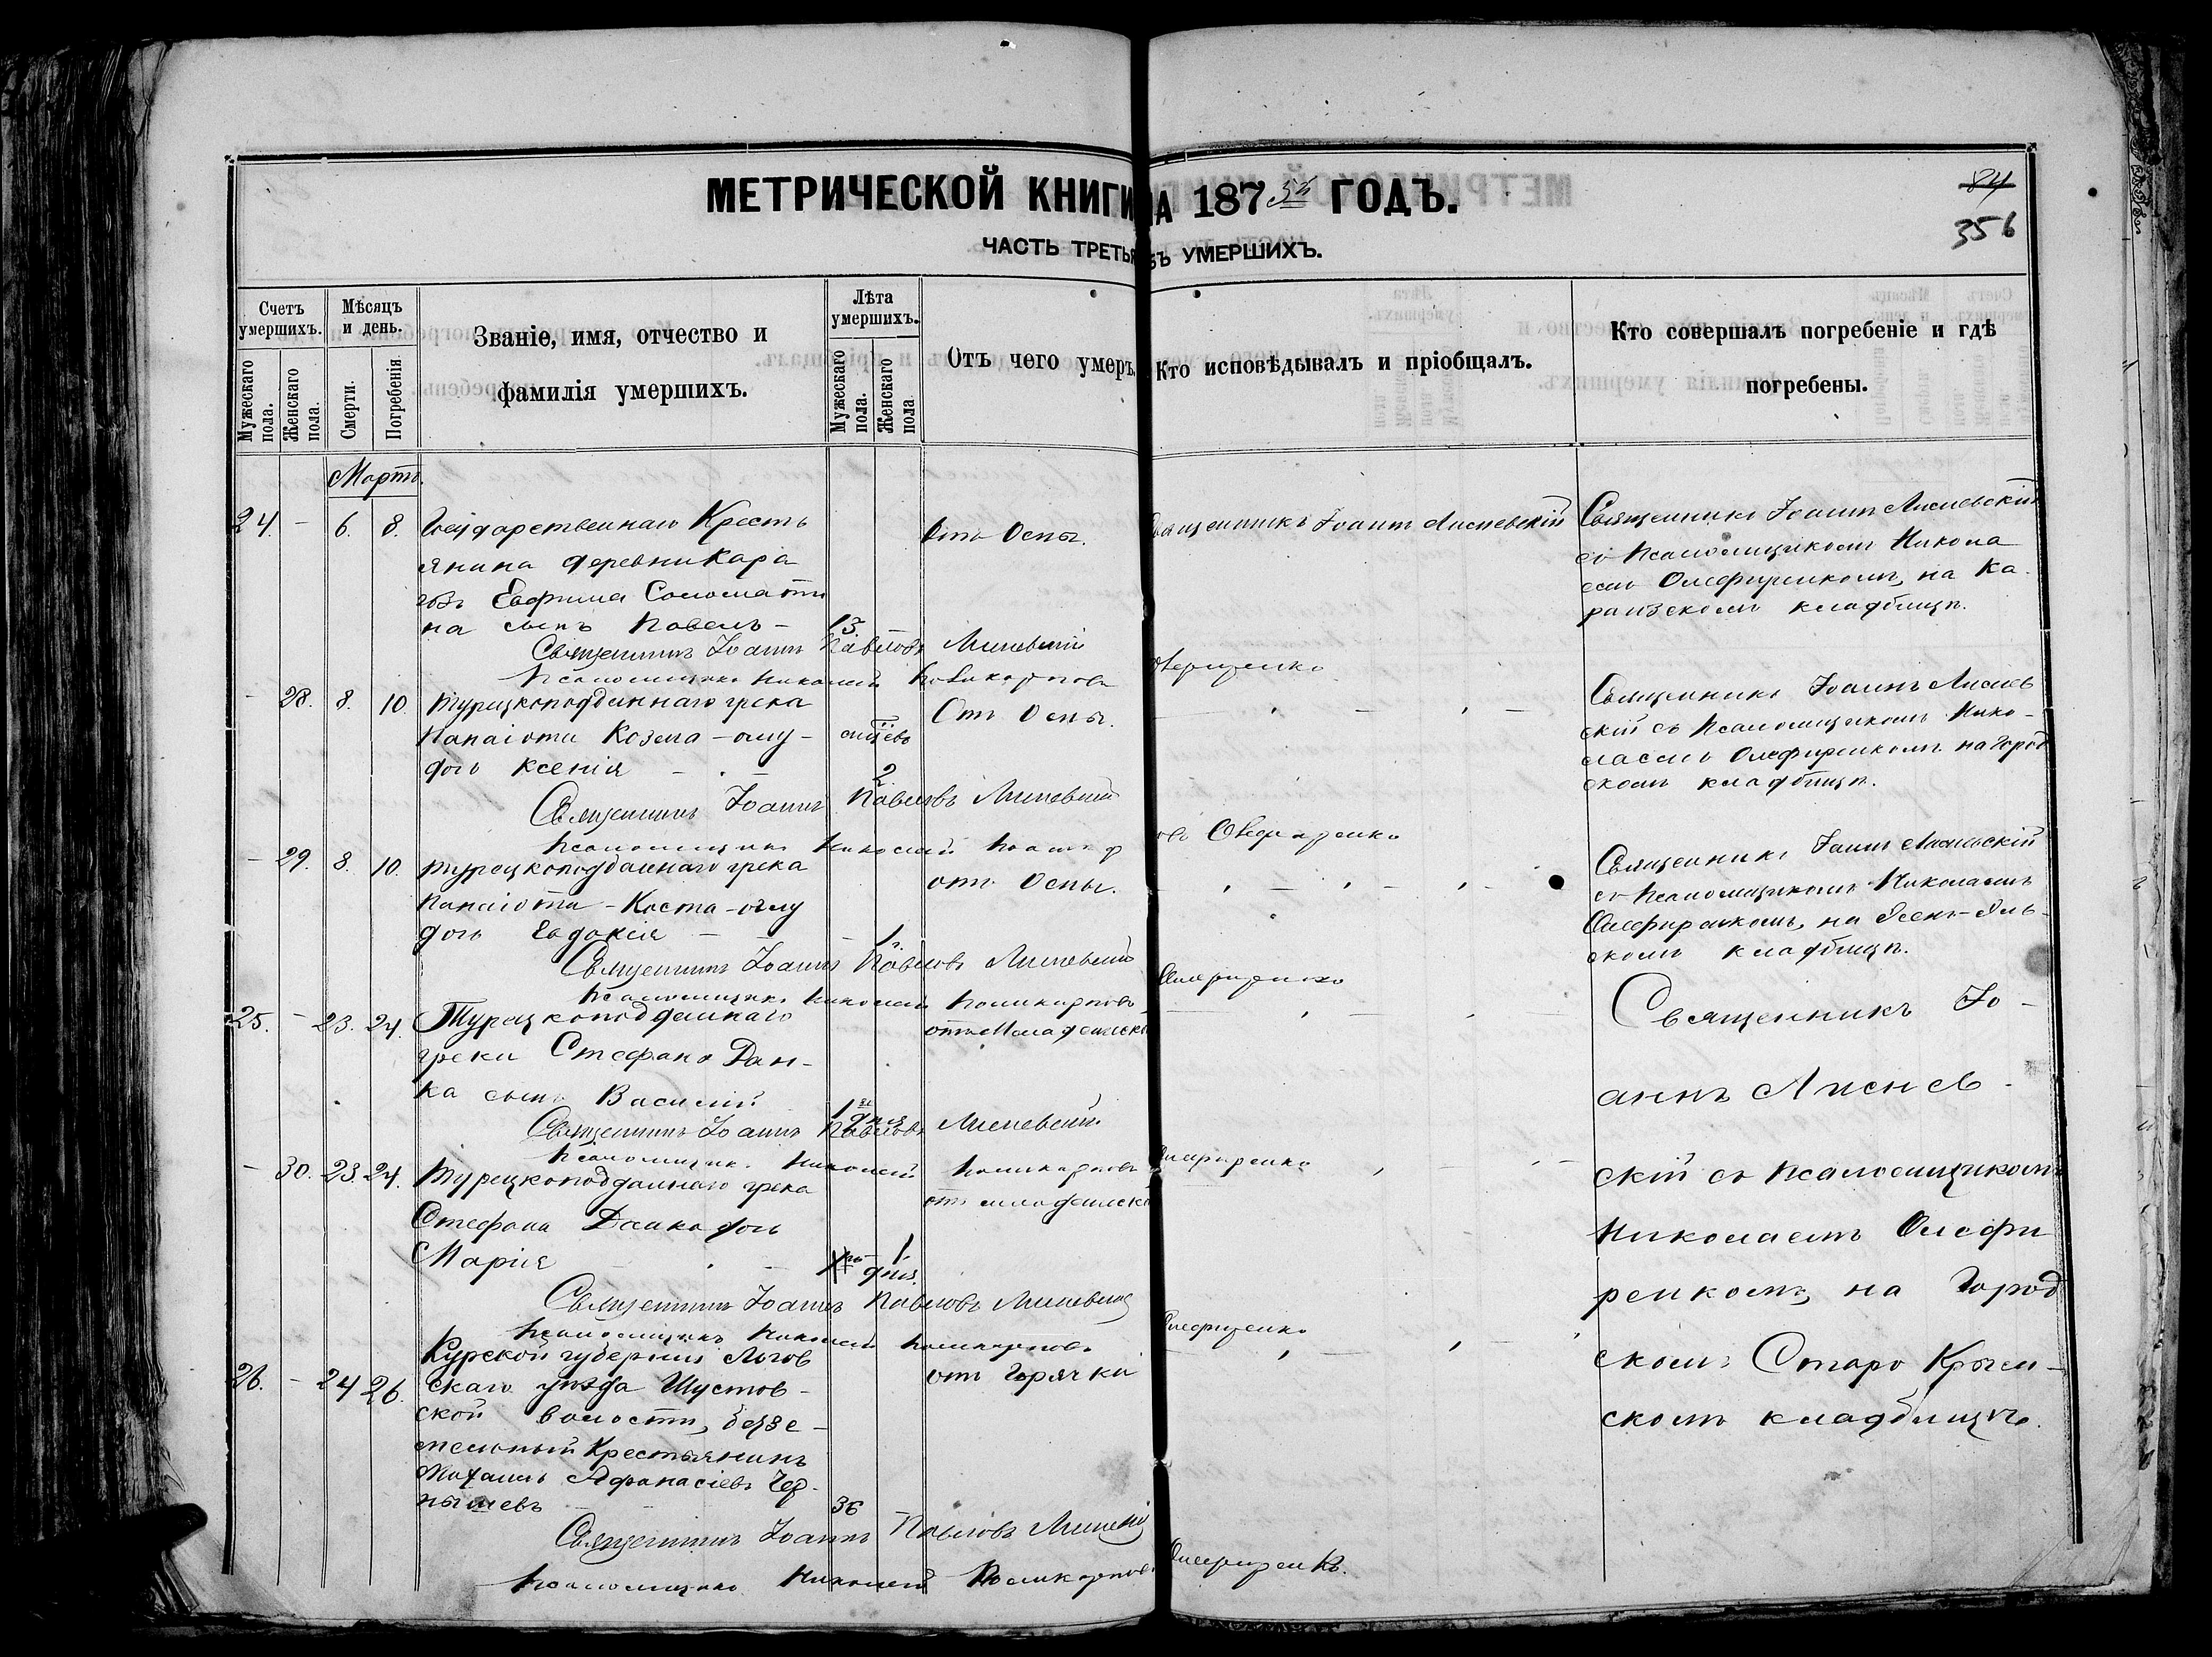 МЕТРИЧЕСКОЙ КНИГИ НА 1875й ГОДЪ.
84
356
ЧАСТЬ ТРЕТЬЯ ОБЪ УМЕРШИХЪ.
Счетъ умершихъ.
Мужескаго пола.
Женскаго пола.
Мѣсяцъ и день.
Смерти.
Погребенія
Званіе, имя, отчество и
фамилія умершихъ.
Лѣта умершихъ.
Мужескаго пола.
Женскаго пола
Отъ чего умеръ
Кто исповѣдывалъ и пріобщалъ.
Кто совершалъ погребеніе и гдѣ
погребены.
Мартъ.
24. - 6. 8. Государственнаго Кресть
янина деревни Кара
гозъ Евфима Соломати
на сынъ Павелъ - 13.
Отъ Оспы.
Священникъ Іоаннъ Лисневскій
Священникъ Іоаннъ Лисневскій
съ Псаломщикомъ Никола
емъ Олефиренкомъ, на Ка
ранзскомъ кладбищѣ.
Священникъ Іоаннъ Павловъ Лисневскій
Псаломщикъ Николай Поликарповъ Олефиренко
- 28. 8. 10. Турецкоподданнаго грека
Панаіоти Козма-оглу-
дочь Ксенія - 2 мѣсяцевъ
Отъ Оспы.
Священникъ Іоаннъ Лиснев
скій съ Псаломщикомъ Нико-
лаемъ Олефиренкомъ на Город
скомъ кладбищѣ.
Священникъ Іоаннъ Павловъ Лисневскій
Псаломщикъ Николай Поликарповъ Олефиренко
- 29. 8. 10. Турецкоподданнаго грека
Панаіоти-Коста-оглу
дочь Евдокія - 1 г.
отъ Оспы.
Священникъ Іоаннъ Лисневскій
съ Псаломщикомъ Николаемъ
Олефиренкомъ, на
скомъ кладбищѣ.
Священникъ Іоаннъ Павловъ Лисневскій
Псаломщикъ Николай Поликарповъ Олефиренко
25. - 23. 24. Турецкоподданнаго
грека Стефана Дан-
ка сынъ Василій 1 дня
отъ Младенческ
Священникъ Іо-
аннъ Лиснев-
скій съ Псаломщикомъ
Николаемъ Олефи
ренкомъ, на Город
скомъ Старо Крым-
скомъ кладбищѣ.
Священникъ Іоаннъ Павловъ Лисневскій
Псаломщикъ Николай Поликарповъ Олефиренко
- 30. 23. 24. Турецкоподданнаго грека
Стефана Данка дочь
Марія 1. дня.
отъ младенческ
Священникъ Іоаннъ Павловъ Лисневскій
Псаломщикъ Николай Поликарповъ Олефиренко
26. - 24 26. Курской губерніи Льгов
скаго уѣзда Шустов-
ской волости, беззе-
мельный Крестьянинъ
Михаилъ Афанасіевъ Чер-
нышевъ 36
отъ Горячки
Священникъ Іоаннъ Павловъ Лисневскій
Псаломщикъ Николай Поликарповъ Олефиренко.